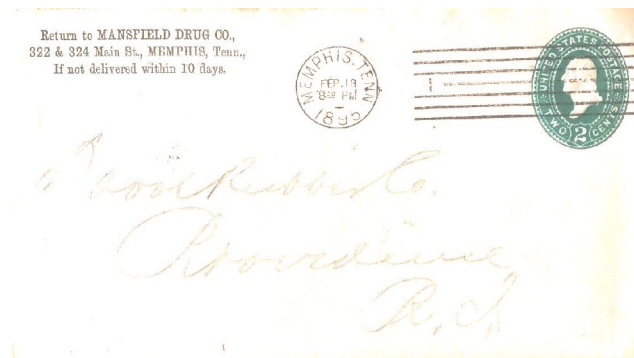 Return to MANSFIELD DRUG CO.,
322 & 324 Main St., MEMPHIS, Tenn.,
If not delivered within 10 days.
MEMPHIS, TENN
FEB 19
PM
1895
1
UNITED STATES POSTAGE
TWO 2 CENTS
Rubber Co.
Providence
R. I.